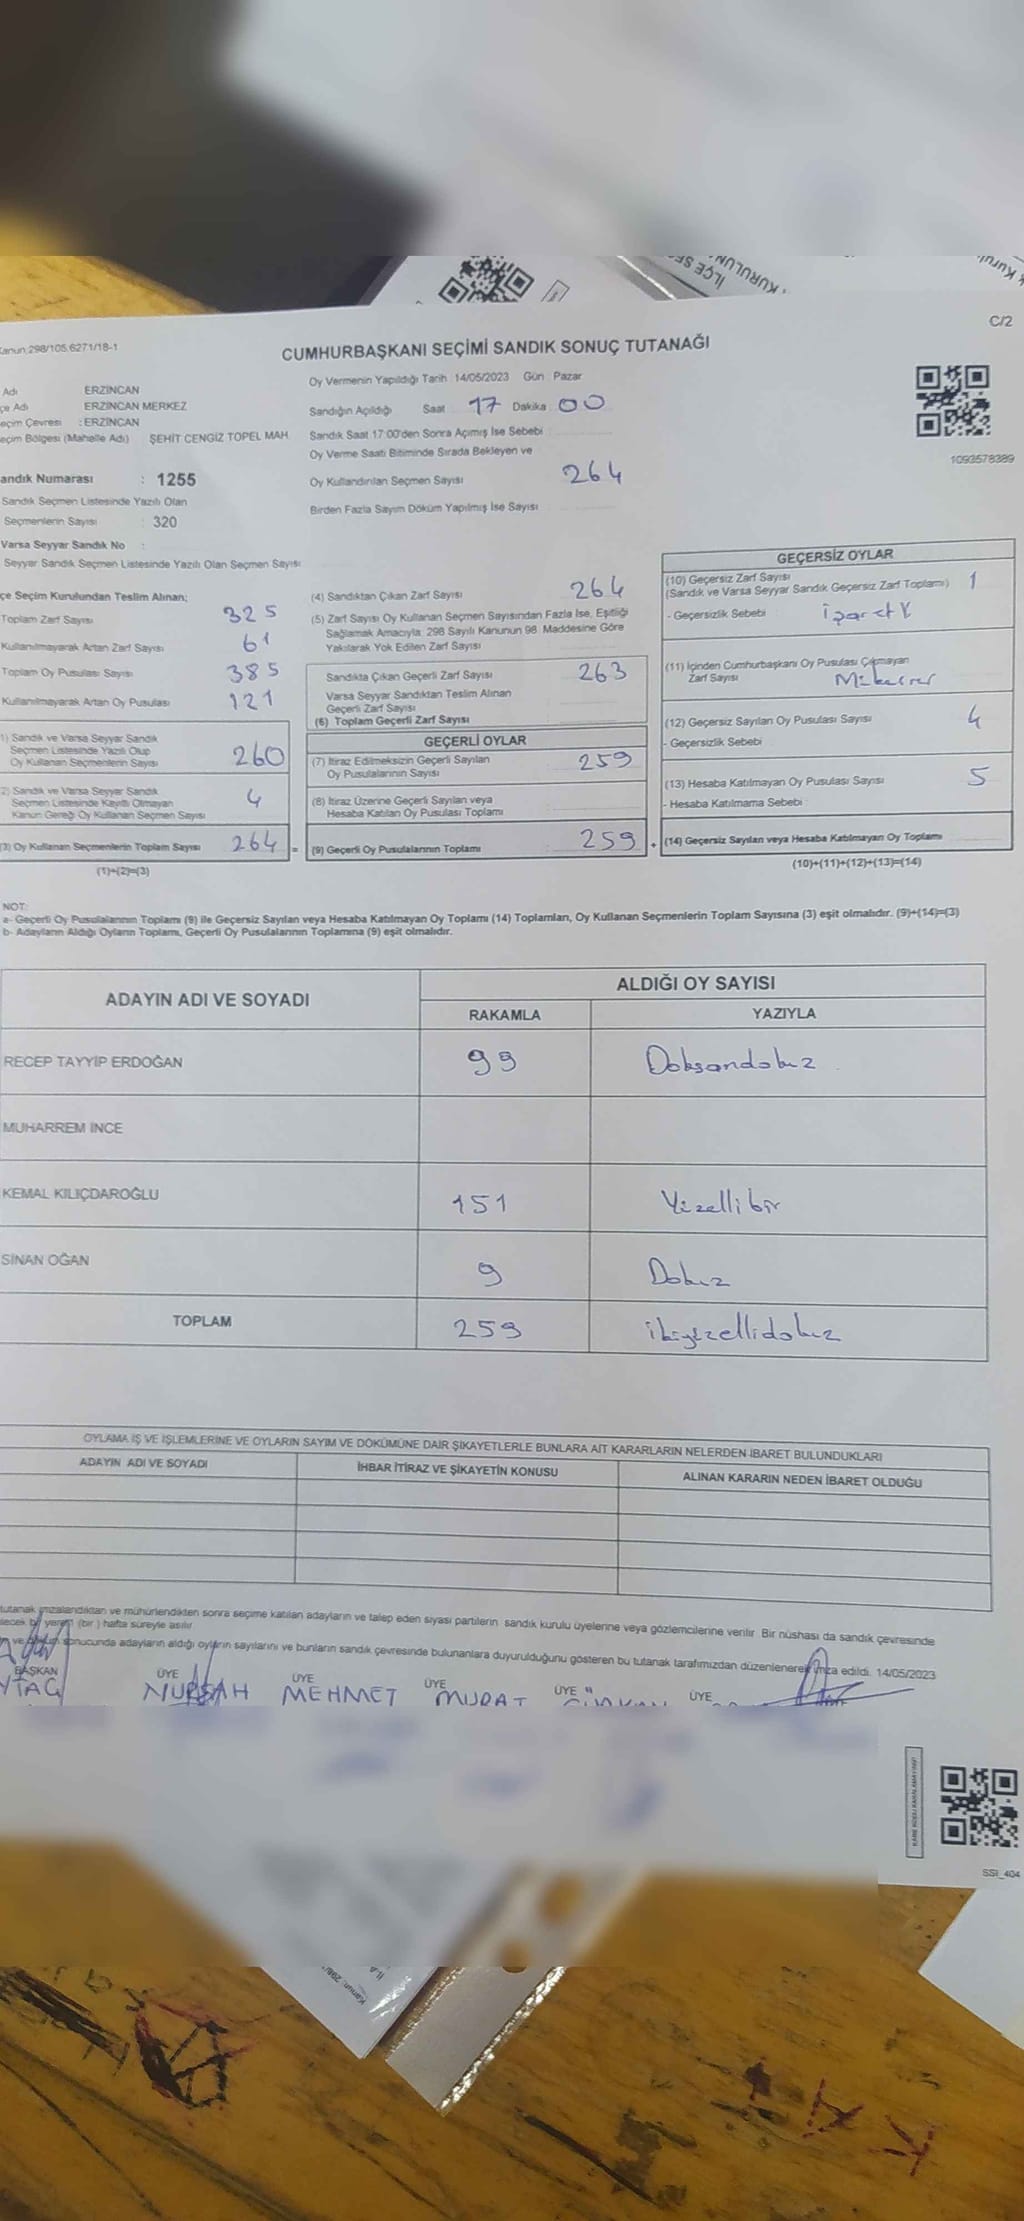 İLÇE SE
KURULUN
Kanun:298/105.6271/18-1
C/2
CUMHURBAŞKANI SEÇİMİ SANDIK SONUÇ TUTANAĞI
Adı ERZİNCAN
çe Adı ERZİNCAN MERKEZ
eçim Çevresi : ERZİNCAN
eçim Bölgesi (Mahalle Adı) ŞEHİT CENGİZ TOPEL MAH.
andık Numarası : 1255
Sandık Seçmen Listesinde Yazılı Olan
Seçmenlerin Sayısı : 320
Varsa Seyyar Sandık No :
Seyyar Sandık Seçmen Listesinde Yazılı Olan Seçmen Sayısı
Oy Vermenin Yapıldığı Tarih : 14/05/2023 Gün : Pazar
Sandığın Açıldığı Saat 17 Dakika 00
Sandık Saat 17:00'den Sonra Açımış İse Sebebi
Oy Verme Saati Bitiminde Sırada Bekleyen ve
Oy Kullandırılan Seçmen Sayısı 264
Birden Fazla Sayım Döküm Yapılmış İse Sayısı
1093578389
çe Seçim Kurulundan Teslim Alınan;
Toplam Zarf Sayısı 325
Kullanılmayarak Artan Zarf Sayısı 61
Toplam Oy Pusulası Sayısı 385
Kullanılmayarak Artan Oy Pusulası 121
1) Sandık ve Varsa Seyyar Sandık
Seçmen Listesinde Yazılı Olup
Oy Kullanan Seçmenlerin Sayısı 260
2) Sandık ve Varsa Seyyar Sandık
Seçmen Listesinde Kayıtlı Olmayan
Kanun Gereği Oy Kullanan Seçmen Sayısı 4
(3) Oy Kullanan Seçmenlerin Toplam Sayısı 264 =
(1)+(2)=(3)
(4) Sandıktan Çıkan Zarf Sayısı 264
(5) Zarf Sayısı Oy Kullanan Seçmen Sayısından Fazla İse, Eşitliği
Sağlamak Amacıyla; 298 Sayılı Kanunun 98. Maddesine Göre
Yakılarak Yok Edilen Zarf Sayısı
Sandıkta Çıkan Geçerli Zarf Sayısı 263
Varsa Seyyar Sandıktan Teslim Alınan
Geçerli Zarf Sayısı
(6) Toplam Geçerli Zarf Sayısı
GEÇERLİ OYLAR
(7) İtiraz Edilmeksizin Geçerli Sayılan
Oy Pusulalarının Sayısı 259
(8) İtiraz Üzerine Geçerli Sayılan veya
Hesaba Katılan Oy Pusulası Toplamı
(9) Geçerli Oy Pusulalarının Toplamı 259 +
GEÇERSİZ OYLAR
(10) Geçersiz Zarf Sayısı
(Sandık ve Varsa Seyyar Sandık Geçersiz Zarf Toplamı) 1
- Geçersizlik Sebebi :
(11) İçinden Cumhurbaşkanı Oy Pusulası Çıkmayan
Zarf Sayısı
(12) Geçersiz Sayılan Oy Pusulası Sayısı 4
- Geçersizlik Sebebi
(13) Hesaba Katılmayan Oy Pusulası Sayısı 5
- Hesaba Katılmama Sebebi :
(14) Geçersiz Sayılan veya Hesaba Katılmayan Oy Toplamı
(10)+(11)+(12)+(13)=(14)
NOT:
a- Geçerli Oy Pusulalarının Toplamı (9) ile Geçersiz Sayılan veya Hesaba Katılmayan Oy Toplamı (14) Toplamları, Oy Kullanan Seçmenlerin Toplam Sayısına (3) eşit olmalıdır. (9)+(14)=(3)
b- Adayların Aldığı Oyların Toplamı, Geçerli Oy Pusulalarının Toplamına (9) eşit olmalıdır.
ADAYIN ADI VE SOYADI ALDIĞI OY SAYISI
RAKAMLA YAZIYLA
RECEP TAYYİP ERDOĞAN 99 Doksandokuz
MUHARREM İNCE
KEMAL KILIÇDAROĞLU 151 Yüzellibir
SİNAN OĞAN 9 Dokuz
TOPLAM 259 ikiyüzellidokuz
OYLAMA İŞ VE İŞLEMLERİNE VE OYLARIN SAYIM VE DÖKÜMÜNE DAİR ŞİKAYETLERLE BUNLARA AİT KARARLARIN NELERDEN İBARET BULUNDUKLARI
ADAYIN ADI VE SOYADI İHBAR İTİRAZ VE ŞİKAYETİN KONUSU ALINAN KARARIN NEDEN İBARET OLDUĞU
tutanak imzalandıktan ve mühürlendikten sonra seçime katılan adayların ve talep eden siyasi partilerin sandık kurulu üyelerine veya gözlemcilerine verilir. Bir nüshası da sandık çevresinde
lecek bir yerem (bir ) hafta süreyle asılır.
ve döküm sonucunda adayların aldığı oyların sayılarını ve bunların sandık çevresinde bulunanlara duyurulduğunu gösteren bu tutanak tarafımızdan düzenlenerek imza edildi. 14/05/2023
BAŞKAN ÜYE ÜYE ÜYE ÜYE ÜYE
YTAÇ NURŞAH MEHMET MURAT
KARE KODU KARALAMAYINIZ
SSİ_404